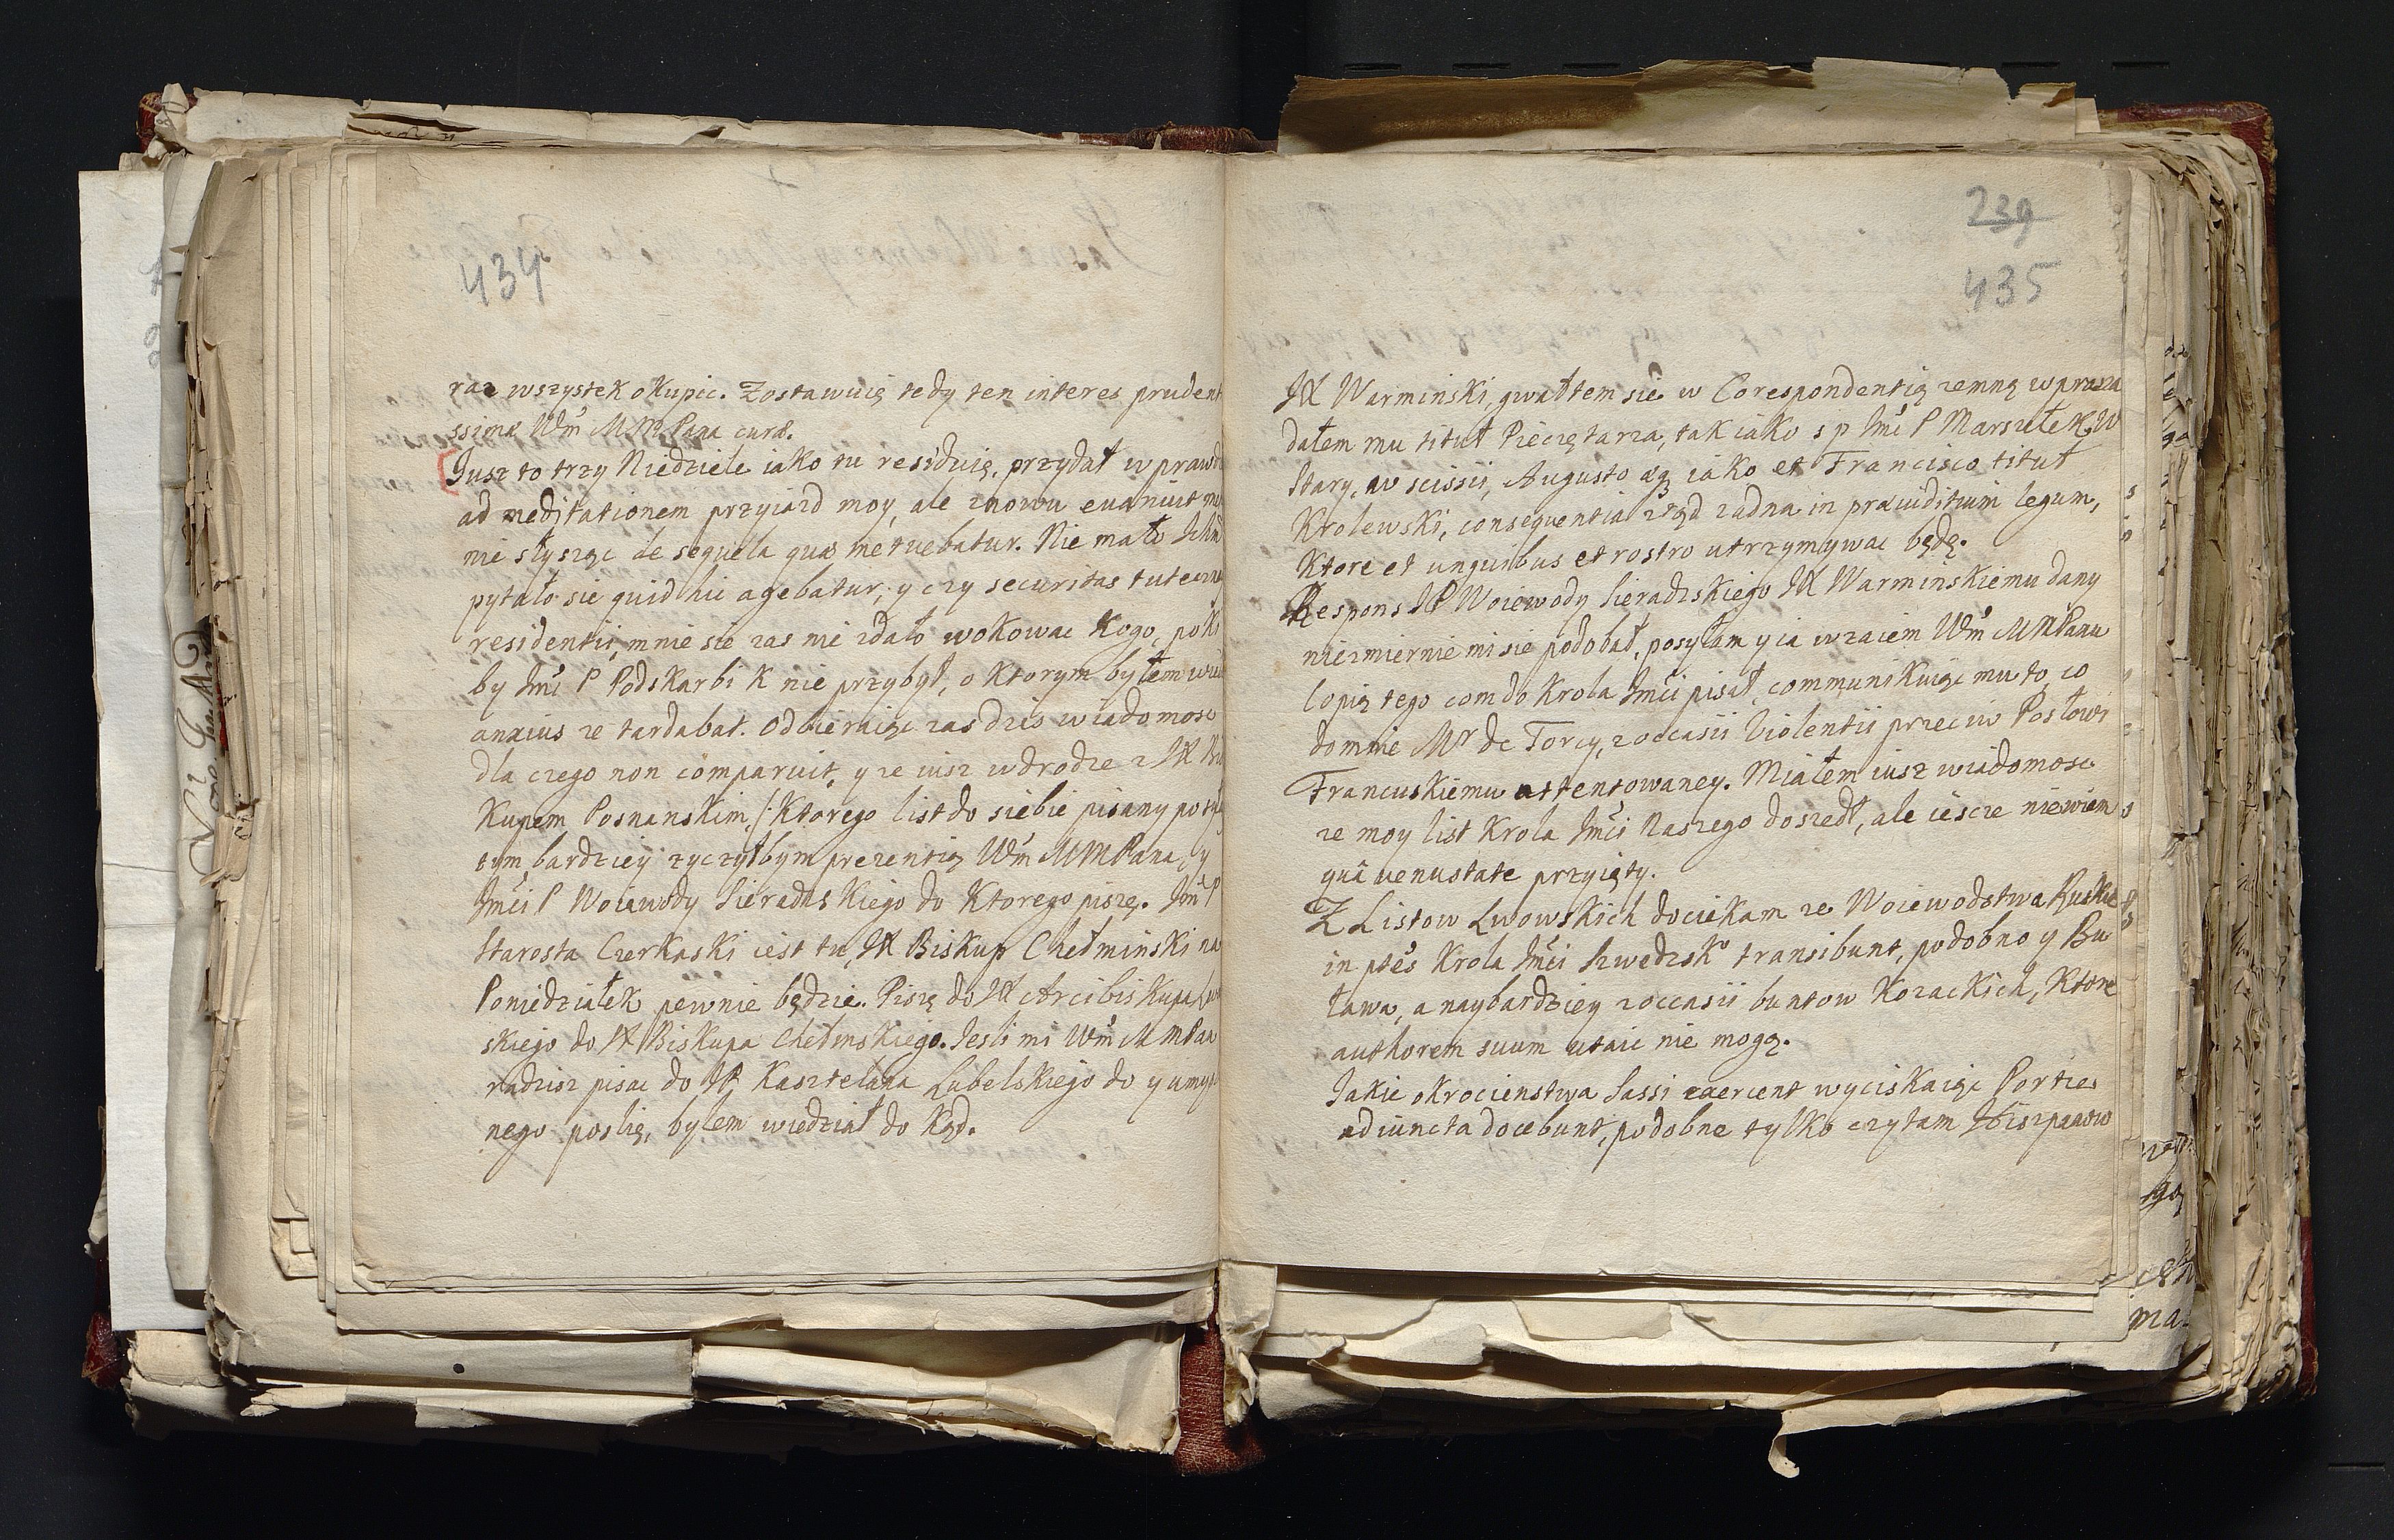 434
raz wszystek okupic. Zostawuię tedy ten interes prudent
ssimæ Wm̃ M M Pana curæ.
Jusz to trzy Niedziele iako tu residuię, przydał w prawd
ad meditationem przyiazd moy, ale znowu evanuit
nie słysząc de sequela quæ metuebatur. Nie mało Ichm
pytało sie quid hic agebatur, y czy securitas tuteczney
residentii, mnie sie zas nie zdało wokowac Kogo, poki
by Jmći P Podskarbi K nie przybył, o Ktorym byłem
anxius ze tardabat. Odbieraiąc zas dzis wiadomosc
dla czego non comparuit, y ze iusz w drodze z JX Bis
Kupem Posnanskim, /:Ktorego list do siebie pisany
tym bardziey zyczyłbym prezentię Wm̃ M M Pana, y
Jmći P Woiewody Sieradzskiego do Ktorego piszę. Jm̃ P
Starosta Czerkaski iest tu, JX Biskup Chełminski na
Poniedziałek pewnie będzie. Piszę do JX Arcibiskupa
skiego do JX Biskupa Chełmskiego. Jesli mi Wm̃ M M Pan
radzisz pisac do JP Kasztelana Lubelskiego do y umys
nego poslię, bylem wiedział do Kąd.
239
435
JX Warminski, gwałtem sie w Corespondentią zemną wprasza
dałem mu tituł Pieczętarza, tak iako s p Jmći P Marszełek W
Stary, in scissii, Augusto æq iako et Francisco tituł
Krolewski, consequentia ztąd zadna in præiuditium legum,
Ktore et unguibus et rostro utrzymywac będę.
Respons JP Woiewody Sieradzskiego JX Warminskiemu dany
niezmiernie mi sie podobał, posyłam y ia wzaiem Wm̃ M M Panu
Copią tego com do Krola Jmći pisał, communikuiąc mu to, co
do mnie Mr de Torcy, z occasii Violentii przeciw Posłowi
Francuskiemu attentowaney. Miałem iusz wiadomosc
ze moy list Krola Jmći Naszego doszedł, ale iescze niewiem
quâ venustate przyięty.
Z Listow Lwowskich dociekam ze Woiewodstwa Ruskie
in ptẽs Krola Jmći Szwedzsko transibunt, podobno y Bu
ława, a naybardziey z occasii buntow Kozackich, Ktore
authorem suum utaic nie mogą.
Jakie okrocienstwa Sassi exercent wyciskaiąc Portie
adiuncta docebunt, podobne tylko czytam Hiszpanow